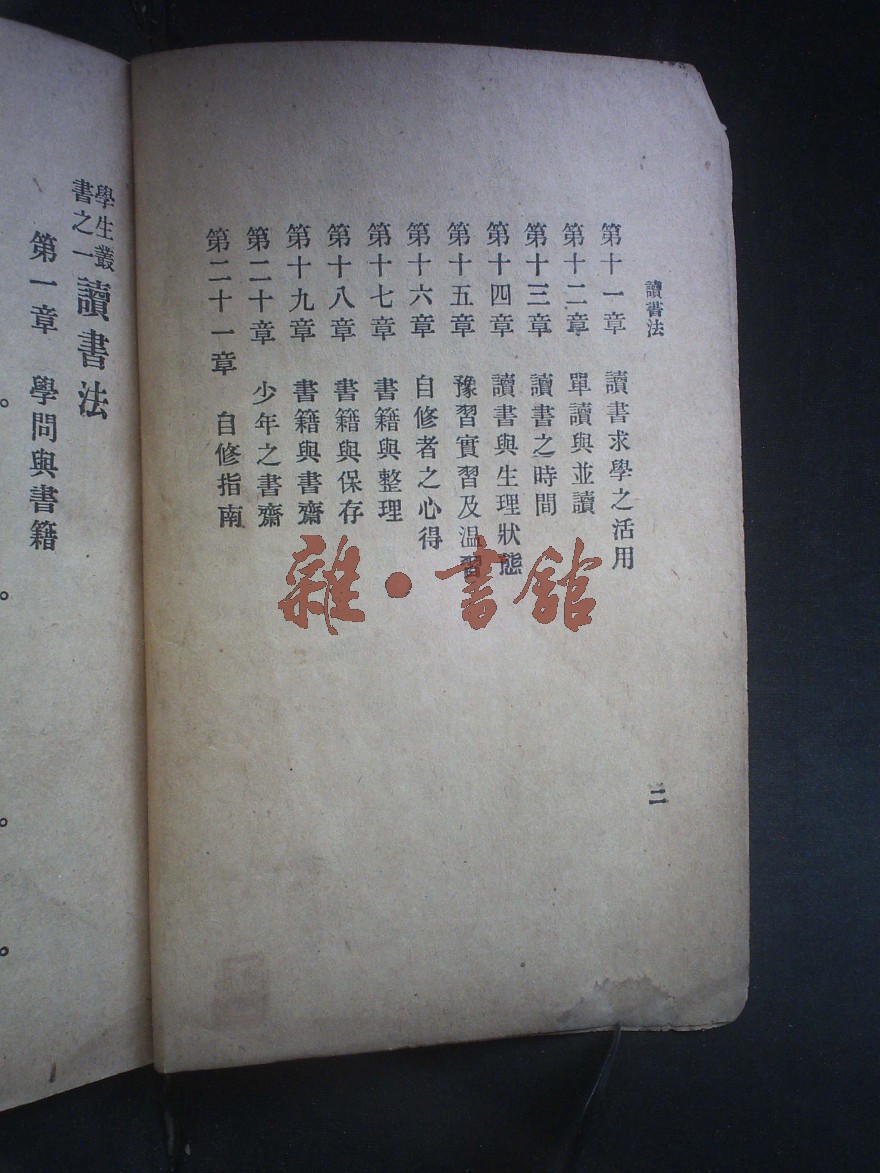 讀書法
第十一章　讀書求學之活用
第十二章　單讀與並讀
第十三章　讀書之時間
第十四章　讀書與生理狀態
第十五章　豫習實習及温習
第十六章　自修者之心得
第十七章　書籍與整理
第十八章　書籍與保存
第十九章　書籍與書齋
第二十章　少年之書齋
第二十一章　自修指南
二
雜·書館
學生叢書之一　讀書法
第一章　學問與書籍